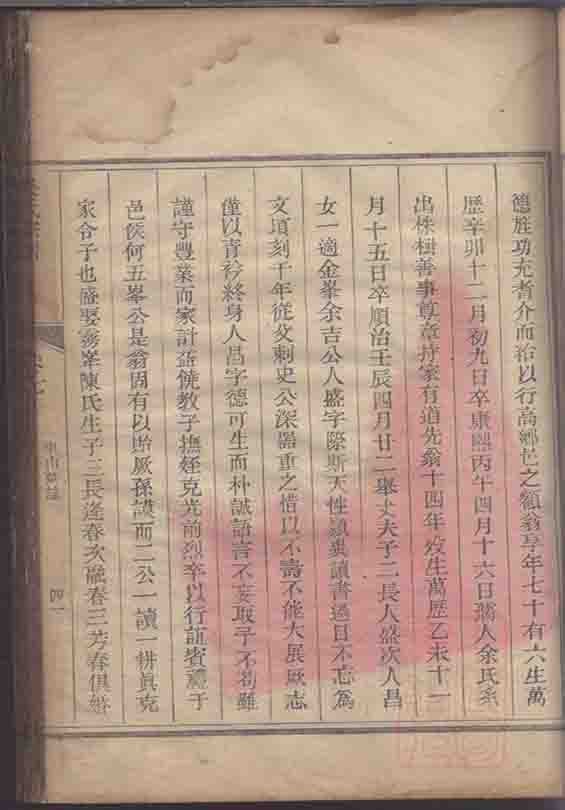 德旌功充耆介而治以行高鄉邑之額翁享年七十有六生萬
歷辛卯十二月初九日卒康熙丙午四月十六日孺人余氏系
出株樹善事尊章持家有道先翁十四年歿生萬歷乙未十一
月十五日卒順治壬辰四月廿二舉丈夫子二長人盛次人昌
女一適金峯余吉公人盛字際斯天性穎異讀書過目不忘為
文頃刻千年從父刺史公深器重之惜以不壽不能大展厥志
僅以青衿終身人昌字德可生而朴誠語言不妄取予不苟雖
謹守豐業而家計益饒教子撫姪克光前烈卒以行誼賓禮于
邑侯何五峯公是翁固有以貽厥孫謨而二公一讀一耕眞克
家令子也盛娶峯陳氏生子三長逢春次融春三芳春俱婚
四一